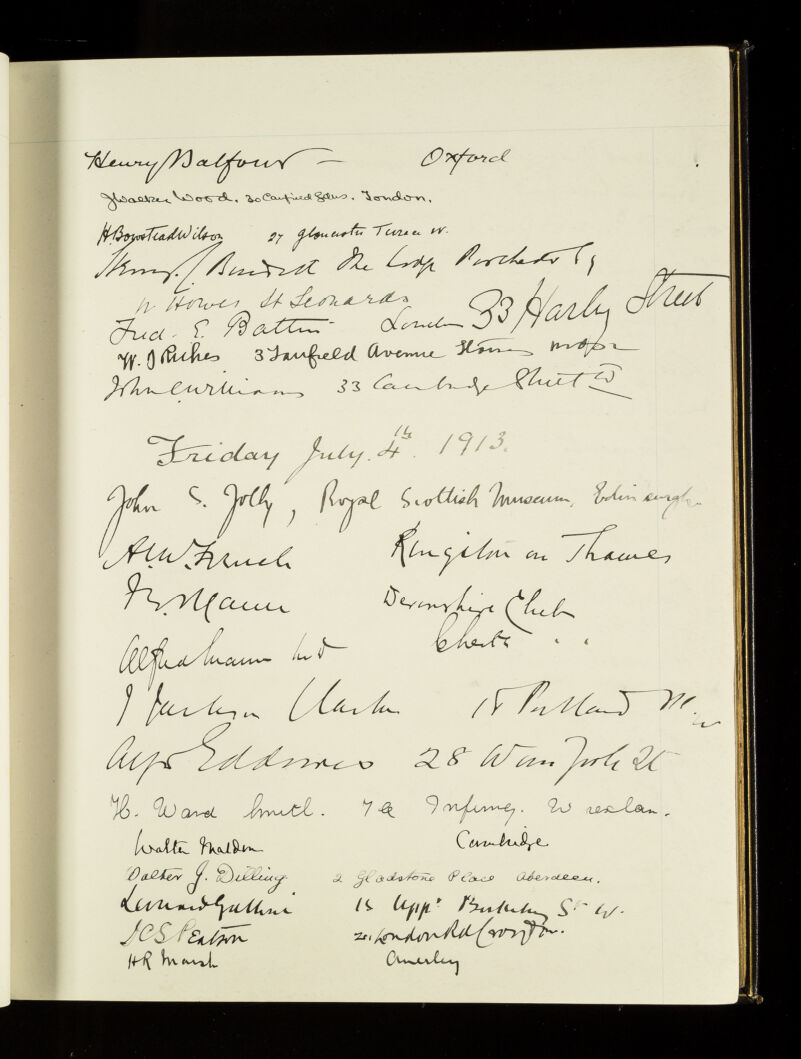 Henry Balfour — Oxford
J Walker Wood. 30 Gdns. London.
H. Bowstead Wilson 27 Gloucester Terrace W.
The Lodge
W Howes St Leonards
Fred. E. Batten London 33 Harley Street
W. J Riches 3 Fairfield Avenue Staines
John Williams 33 Cambridge Street W
Friday July. 4th. 1913.
John S. Jolly, Royal Scottish Museum, Edinburgh
A.W. French Kingston on Thames
Mann Devonshire Club
Alfred Mann MD " "
J Jackson Clarke 18 Portland Pl. W
Alfd Eddowes 28 Wimpole St
H. Ward Smith. Infirmy.
Walter Malden Cambridge
Walter J. Dilling 2 Gladstone Place Aberdeen.
Leonard Guthrie 15 Uppr Berkeley St W.
London Rd Croydon.
HR Marsh Anerley